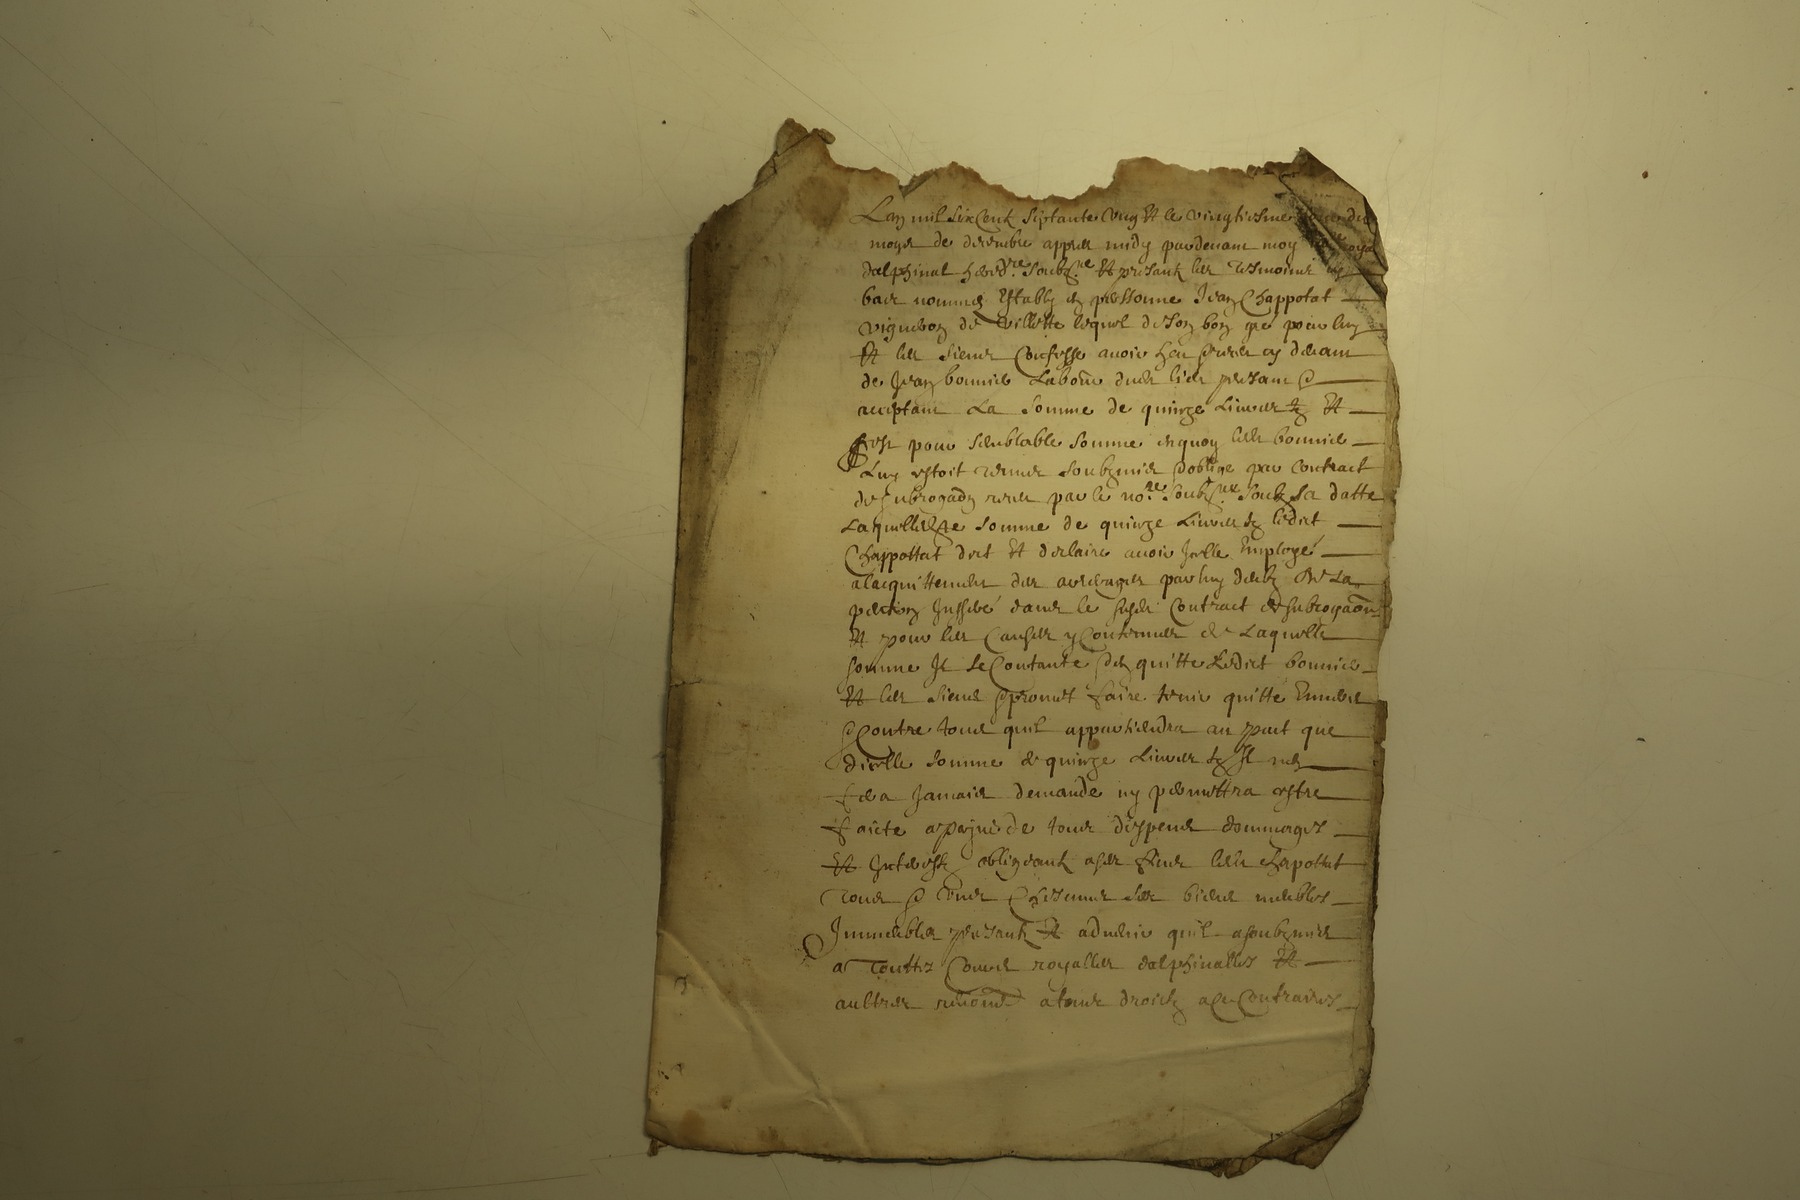 Lan mil six cent septante ung et le vingtiesme jour du
moys de decembre appres midy pardevant moy no.re royal
dalphinal hered.re soubz.ne et presantz les tesmoins cy
bas nommes estably en personne Jean Chappotat
vigneron de Villette lequel de son bon gre pour luy
et les siens confesse avoir heu et receu cy devant
de Jean bonnier labour dud lieu presant et
acceptant la somme de quinze livres tz et
cest pour semblable somme en quoy led bonnier
luy estoit tenu soubzmis et oblige par contract
de subrogaon receu par le no.re soubz.ne soubz sa datte
laquelle somme de quinze livres tz ledict
Chappottat dict et desclaire avoir icelle employé
a lacquittement des arrerages par luy deubz de la
pention inseré dans le susd contract de subrogaon
et pour les causes y contenues de laquelle
somme il se contante et en quitte ledict bonnier
et les siens et promet faire tenir quitte envers
et contre tous quil appartiendra au pact que
dicelle somme de quinze livres tz il nen
fera jamais demande ny permettra estre
faicte a payne de tous despens dommages
et interestz obligeant a ses fins led chapottat
tous et uns chescuns ses biens meubles
immeubles presantz et advenir quil a soubzmis
a touttes cours royalles dalphinalles et
aultres renoncé a tous droictz a ce contraires